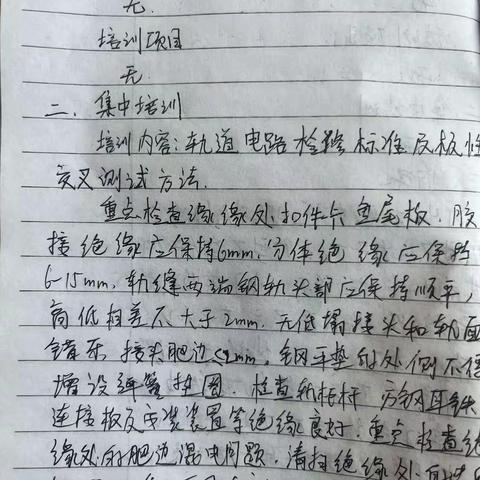 无.
培训项目
无.
二、集中培训
培训内容:轨道电路检修标准及极性
交叉测试方法.
重点检查绝缘处扣件卡鱼尾板,胶
接绝缘应保持6mm,分体绝缘应保持
6-15mm,轨缝两端钢轨头部应保持顺平,
高低相差不大于2mm.无低塌接头和轨面
错牙 接头肥边<2mm,钢平垫 外侧不得
增设弹簧垫圈.检查轨杆 方钢耳铁
连接板及安装装置等绝缘良好.重点检查绝
缘处的肥边混电问题.清扫绝缘处